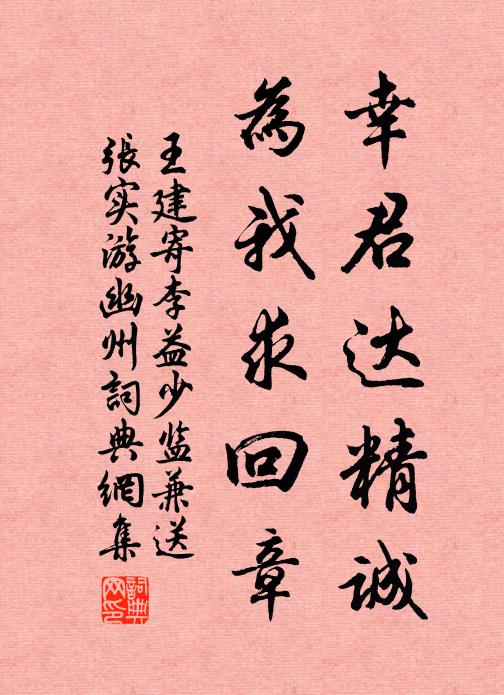 幸君达精诚
為我求回章
王建寄李益少监兼送
張实游幽州詞典網集
詞典網印